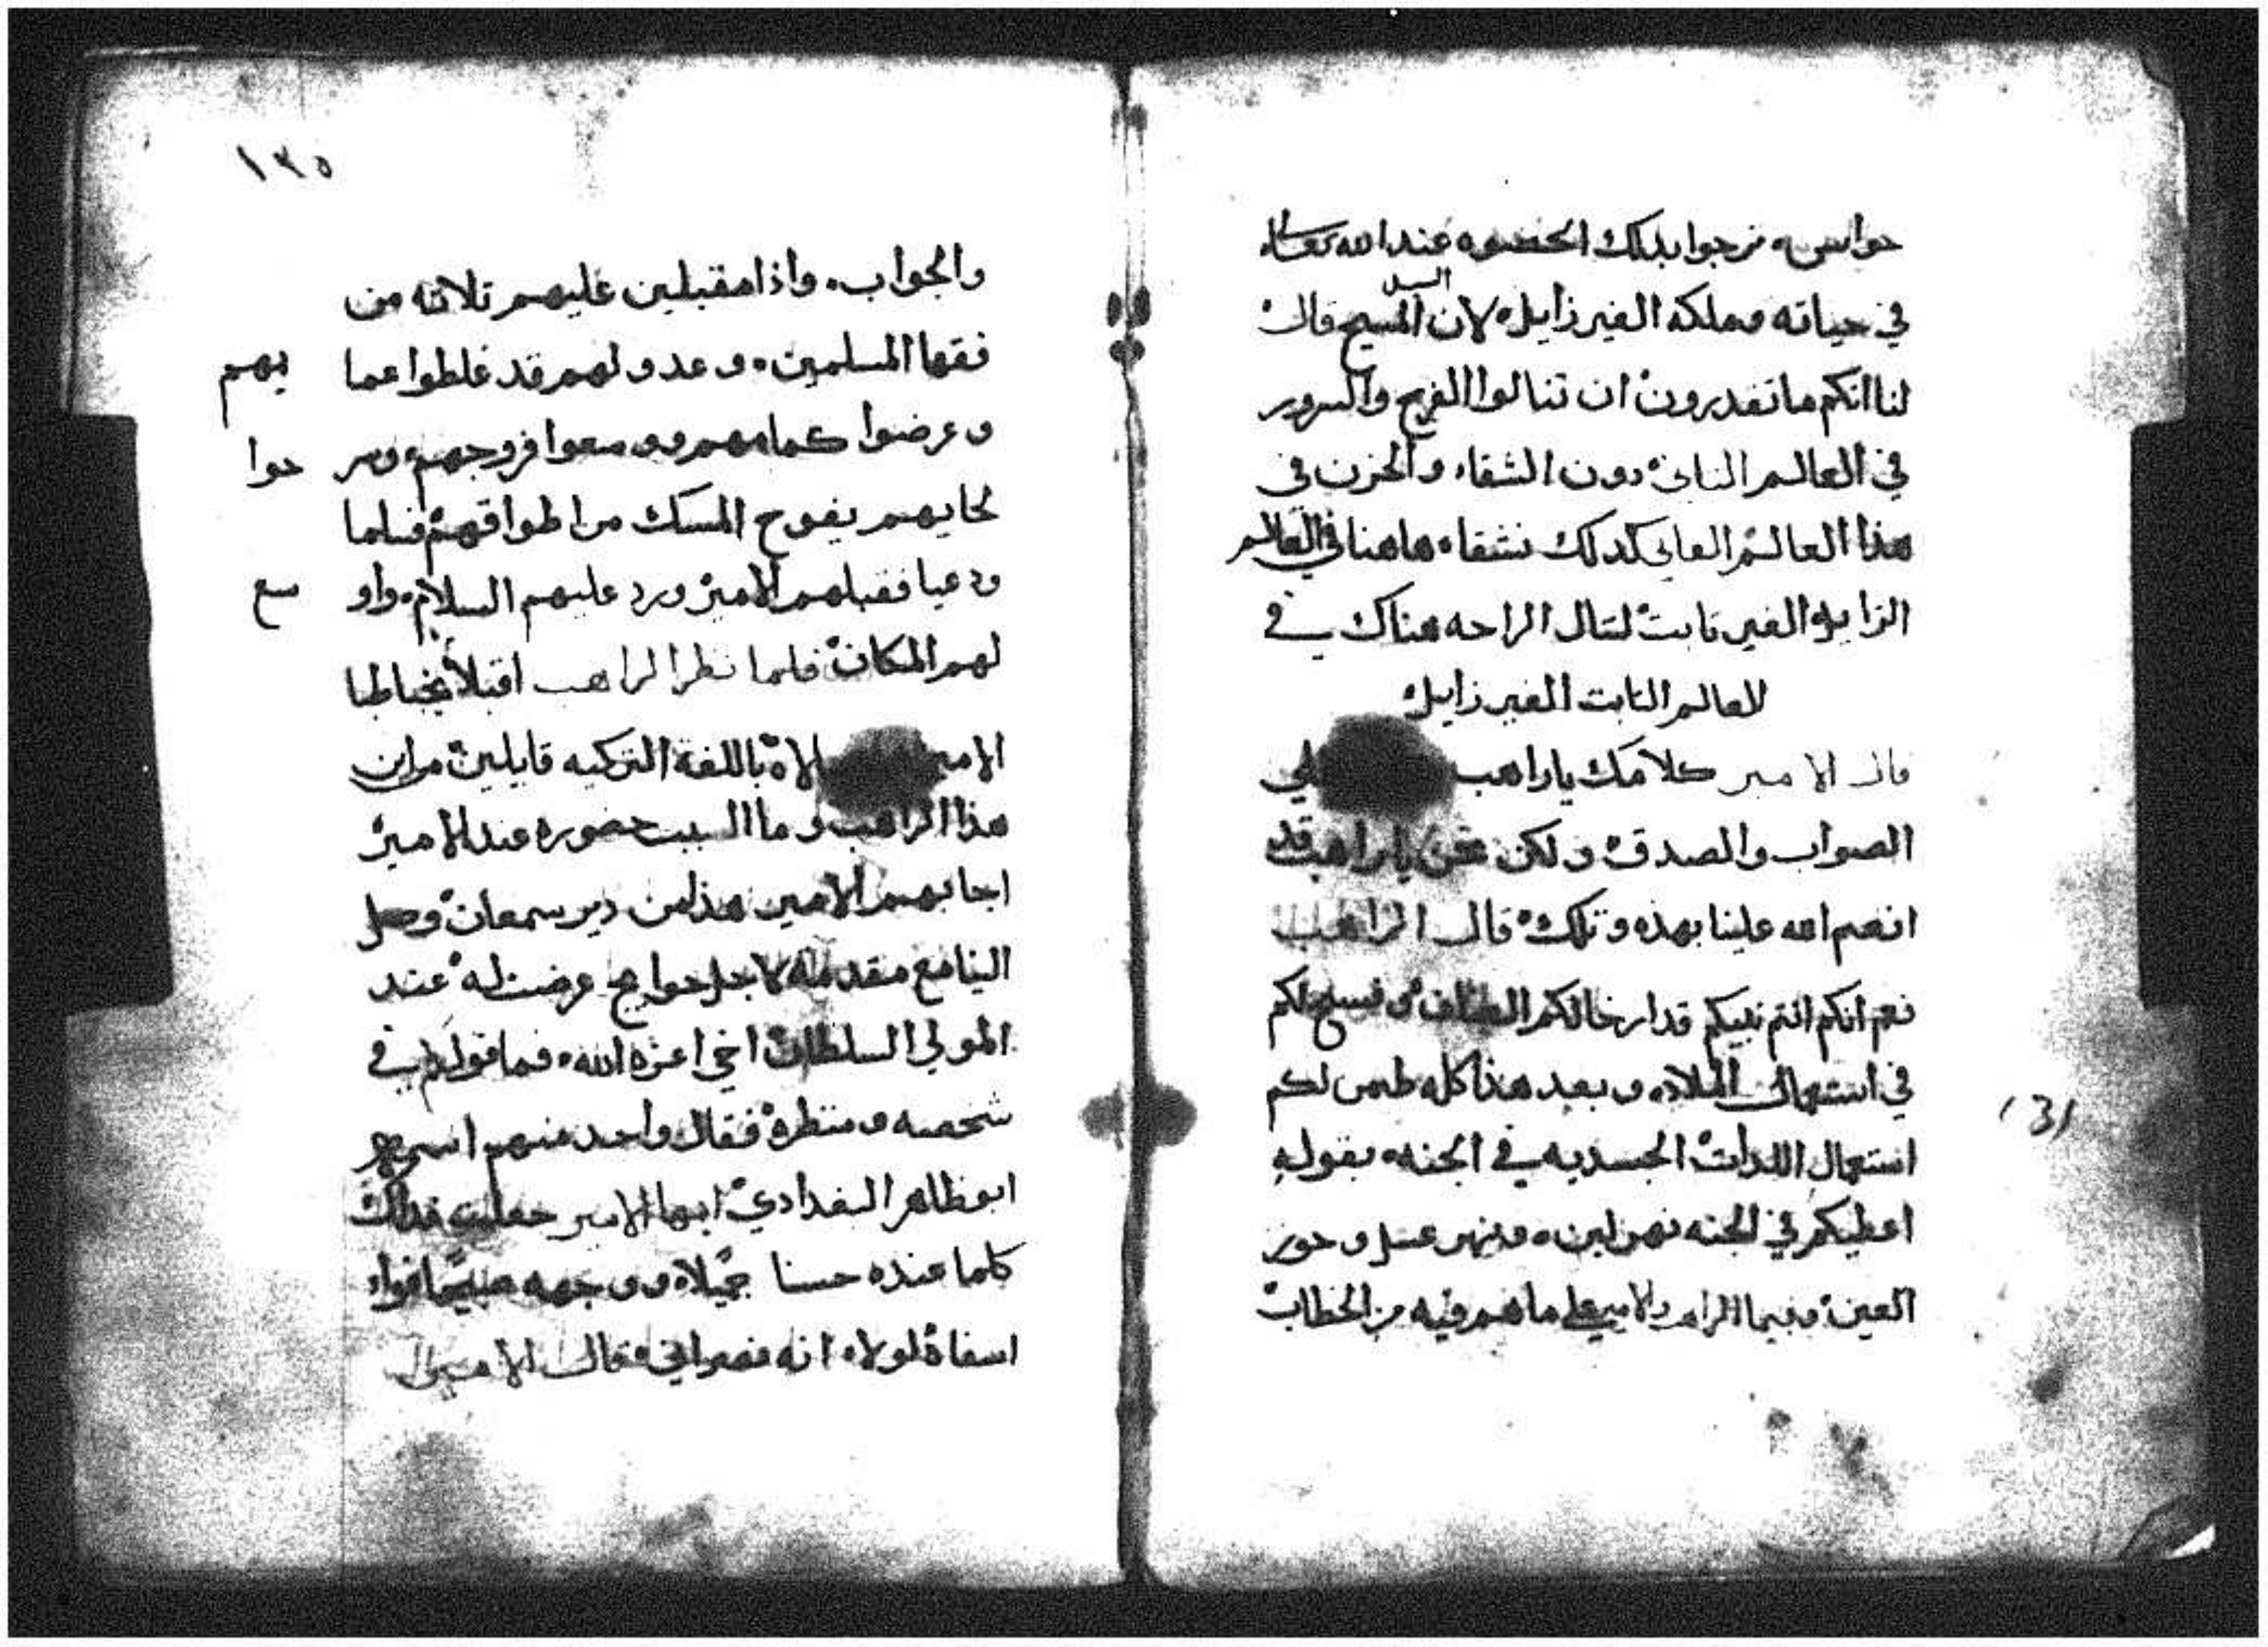 حواس ه نرجوا بدلك الحضوه عند الله تعالى
السيد
في حياته وملكه الغير زايله لان المسيح قال
لنا انكم ما تقدرون ان تنالوا الفرح والسرور
في العالم الثاني دون الشقاء والحزن في
هذا العالم الفاني كدلك نشقاء هاهنا في العالم
الزايل والغير ثابت لننال الراحه هناك في
لعالم الثابت الغير زايل
قال الامير كلامك ياراهب لي
الصواب والصدق ولكن نحن ياراهب قد
انعم الله علينا بهذه وتلك قال الراهب
نعم انكم انتم نبيكم قد ارخا لكم وفسح لكم
في استهمال الملاد وبعد هذا كله طمس لكم
استعمال اللدات الجسديه في الجنه بقوله
اعطيكم في الجنه نهر لبن ونهر عسل وحور
العين وفيما الراهب والامير على ماهم فيه من الخطاب
١٣٥
والجواب واذا مقبلين عليهم تلاته من
فقها المسلمين وعدولهم قد غلطوا عما يهم
وعرضوا كمامهم ووسعوا فروجهم وسر حوا
لحايهم يفوح المسك من اطواقهم فلما
ودعيا فقبلهم الامير ورد عليهم السلام واو سع
لهم المكان فلما نظر الراهب اقبلا يخاطبا
الامير باللغة التركيه قايلين من اين
هذا الراهب وما السبب حضوره عند الامير
اجابهم الامير هذا من دير سمعان وصل
الينا مع مقدمه لاجل حوايج عرضت له عند
المولي السلطان اخي اعزه الله فما قولكم في
شخصه ومنظره فقال واحد منهم اسمه
ابو ظاهر البغدادي ايها الامير جعلت فداك
كلما عنده حسنا جميلا ووجهه صبيحا فوا
اسفاه لولا انه نصراني قال الامير